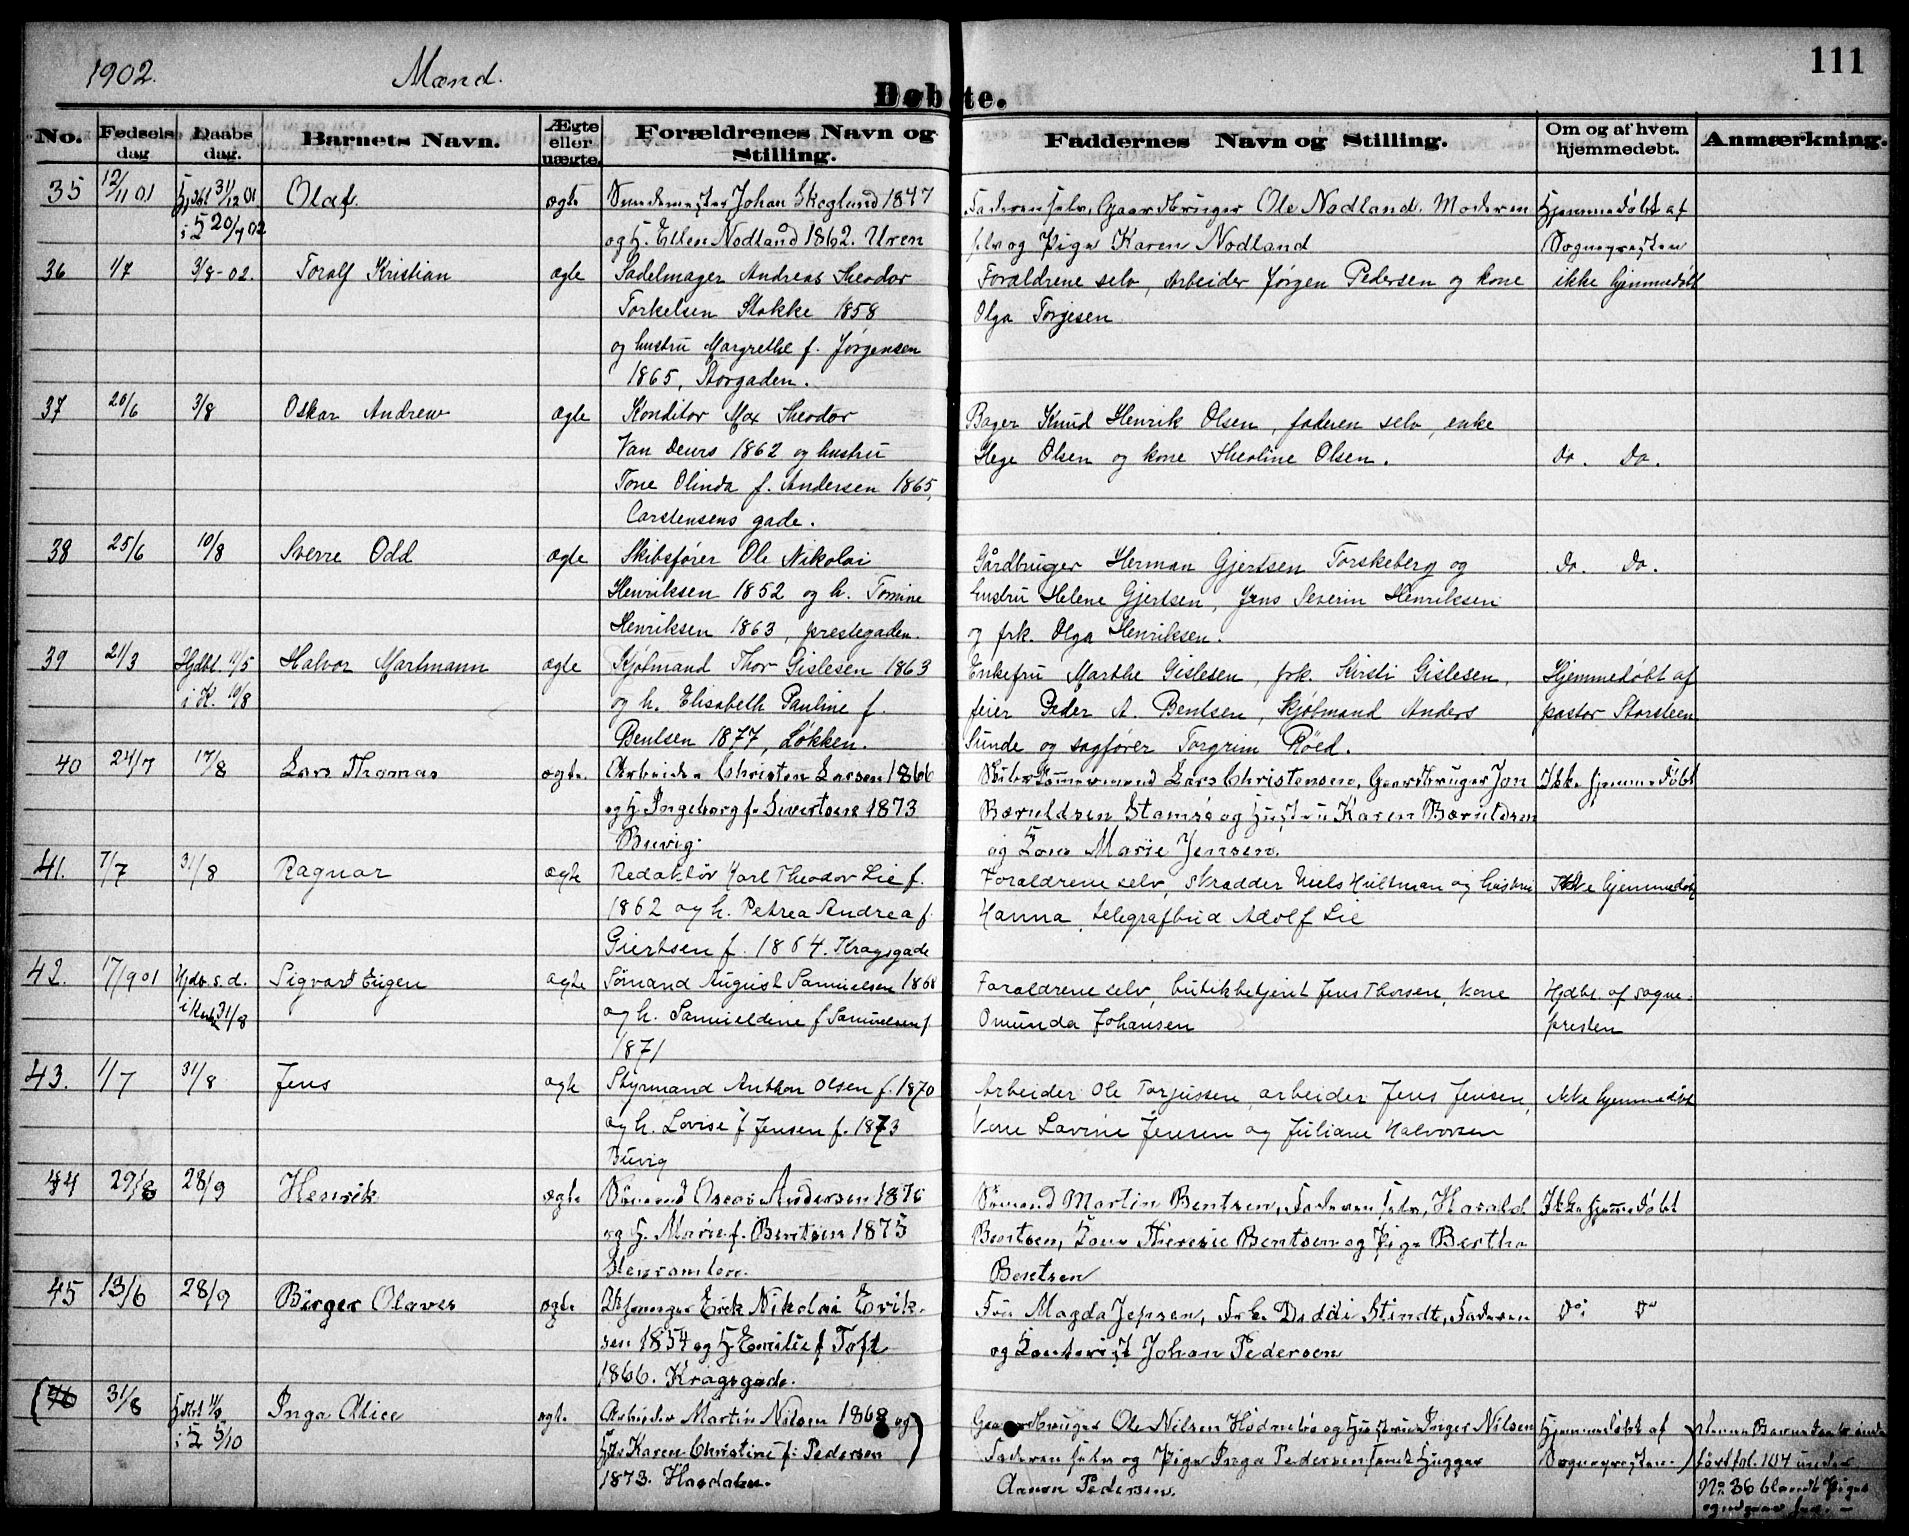 111
1902. Mænd.
Døbte.
No. Fødsels dag Daabs dag. Barnets Navn. Ægte eller uægte. Forældrenes Navn og Stilling. Faddernes Navn og Stilling. Om og af hvem hjemmedøbt. Anmærkning.
35 12/11 01 Hjdbt 31/12 01 Olaf. ægte Johan Skeglund 1847 Faderen selv, Gaardbruger Ole Nodland. Moderen Hjemmedøbt af
i K 20/7 02 og H. Ellen Nodland 1862. Uren selv og Pige Karen Nodland Sognepresten
36 1/7 3/8-02. Toralf Kristian ægte Sadelmager Andreas Theodor Forældrene selv, Arbeider Jørgen Pedersen og kone ikke hjemmedøbt
Torkelsen Stokke 1858 Olga Torjesen
og hustru Margrethe f. Jørgensen
1865, Storgaden.
37 20/6 3/8 Oskar Andrew ægte Konditor Max Theodor Bager Knud Henrik Olsen, faderen selv, enke
Van Deurs 1862 og hustru Hege Olsen og kone Theoline Olsen. Do. Do.
Tone Olinda f. Andersen 1865,
Carstensens gade.
38 25/6 10/8 Sverre Odd ægte Skibsfører Ole Nikolai Gårdbruger Herman Gjertsen Torskeberg og Do. Do.
Henriksen 1852 og h. Tomine hustru Helene Gjertsen, Jens Severin Henriksen
Henriksen 1863, prestegaden. og frk. Olga Henriksen.
39 21/3 Hjdbt. 11/5 Halvor Martmann ægte Kjøbmand Thor Gislesen 1863 Enkefru Marthe Gislesen, frk. Kirsti Gislesen, Hjemmedøbt af
i K. 10/8 og h. Elisabeth Pauline f. feier Peder A. Bentsen, kjøbmand Anders pastor Storsteen
Bentsen 1877, Løkken. Sunde og sagfører Torgrim Røed.
40 24/7 17/8 Lars Thomas ægte. Arbeider Christen Larsen 1866 Lars Christensen, Gaardbruger Jon Ikke hjemmedøbt
og H. Ingeborg f. Sivertsen 1873 Bæruldsen Stamsø og Hustru Karen Bæruldsen
Buvig. og Kone Marie Jensen.
41. 7/7 31/8 Ragnar ægte Redaktør Karl Theodor Lie f. Forældrene selv, skrædder Niels Hultman og hustru Ikke hjemmedøbt
1862 og h. Petrea Andrea f. Hanna, telegrafbud Adolf Lie
Giertsen f. 1864. Kragsgade
42. 17/9 01 Hjdb. s. d. Sigvard Eugen ægte Sømand August Samuelsen 1868 Forældrene selv, butikbetjent Jens Thorsen, kone Hjdbt af sogne-
i Kirk 31/8 og h. Samueldine f Samuelsen f. Omunda Johansen presten
1871
43. 1/7 31/8 Jens ægte Styrmand Anthon Olsen f. 1870 Arbeider Ole Torjussen, arbeider Jens Jensen, ikke hjemmedøbt
og h. Lovise f Jensen f. 1873 kone Lavine Jensen og Juliane Halvorsen
Buvig
44 29/8 28/9 Henrik ægte Sømand Oscar Andersen 1876 Sømand Martin Bentsen, Faderen selv, Harald Ikke hjemmedøbt
og H. Marie f. Bentsen 1875 Bentsen, Kone Theresie Bentsen og Pige Bertha
Bentsen
45 13/6 28/9 Birger Olaves ægte Erik Nikolai Erik- Fru Magda Jepsen, Frk. Diddi Stindt, Faderen Do Do
sen 1854 og H Emilie f Toft og Kontorist Johan Pedersen
1866. Kragsgade.
(46 31/8 Hjdbt i K 5/10 Inga Alice ægte. Arbeider Martin Nilsen 1868 og Gaardbruger Ole Nilsen Hødnebø og Hustru Inger Nilsen Hjemmedøbt af
H. Karen Christine f. Pedersen) Faderen selv og Pige Inga Pedersen samt Hugger Sognepresten.
1873. Aanon Pedersen.
ført fol. 104 under
No. 36 blandt Piger